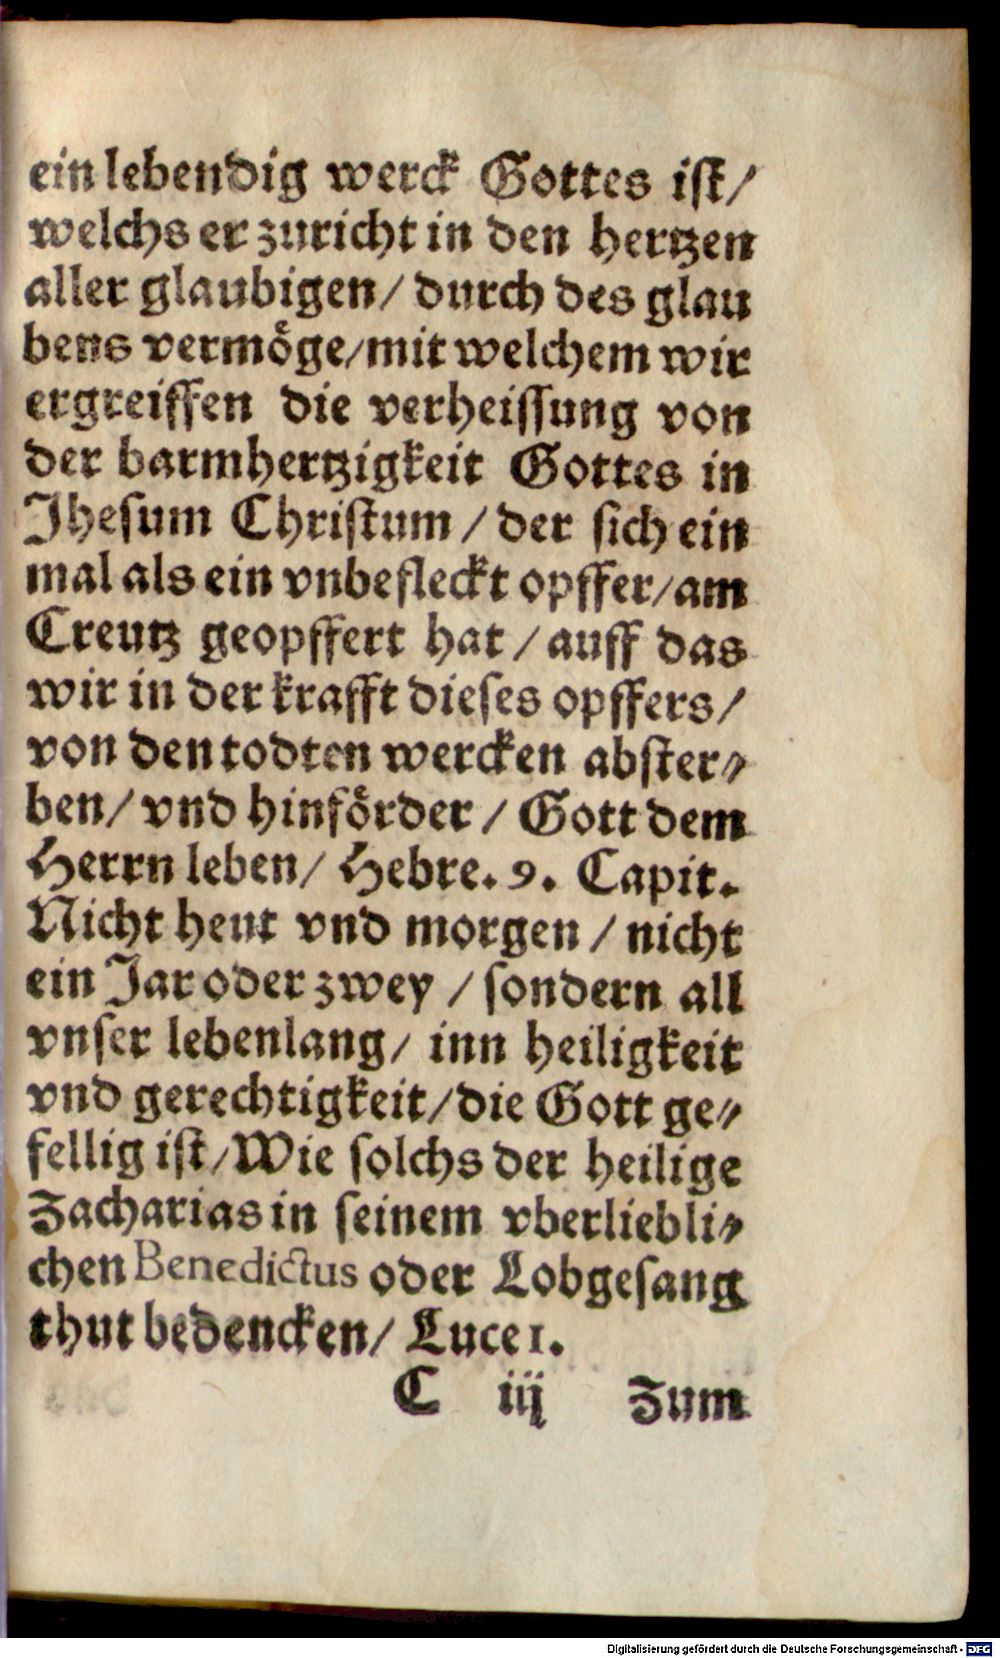 ein lebendig werck Gottes ist/
welchs er zuricht in den hertzen
aller glaubigen/ durch des glau
bens vermöge/mit welchem wir
ergreiffen die verheissung von
der barmhertzigkeit Gottes in
Jhesum Christum / der sich ein
mal als ein vnbefleckt opffer/am
Creutz geopffert hat / auff das
wir in der krafft dieses opffers/
von den todten wercken abster⸗
ben/ vnd hinförder / Gott dem
Herrn leben/ Hebre. 9. Capit.
Nicht heut vnd morgen / nicht
ein Jar oder zwey / sondern all
vnser lebenlang/ inn heiligkeit
vnd gerechtigkeit/die Gott ge⸗
fellig ist/Wie solchs der heilige
Zacharias in seinem vberliebli⸗
chen Benedictus oder Lobgesang
thut bedencken/ Luce 1.
C iij Zum
Digitalisierung gefördert durch die Deutsche Forschungsgemeinschaft - DFG